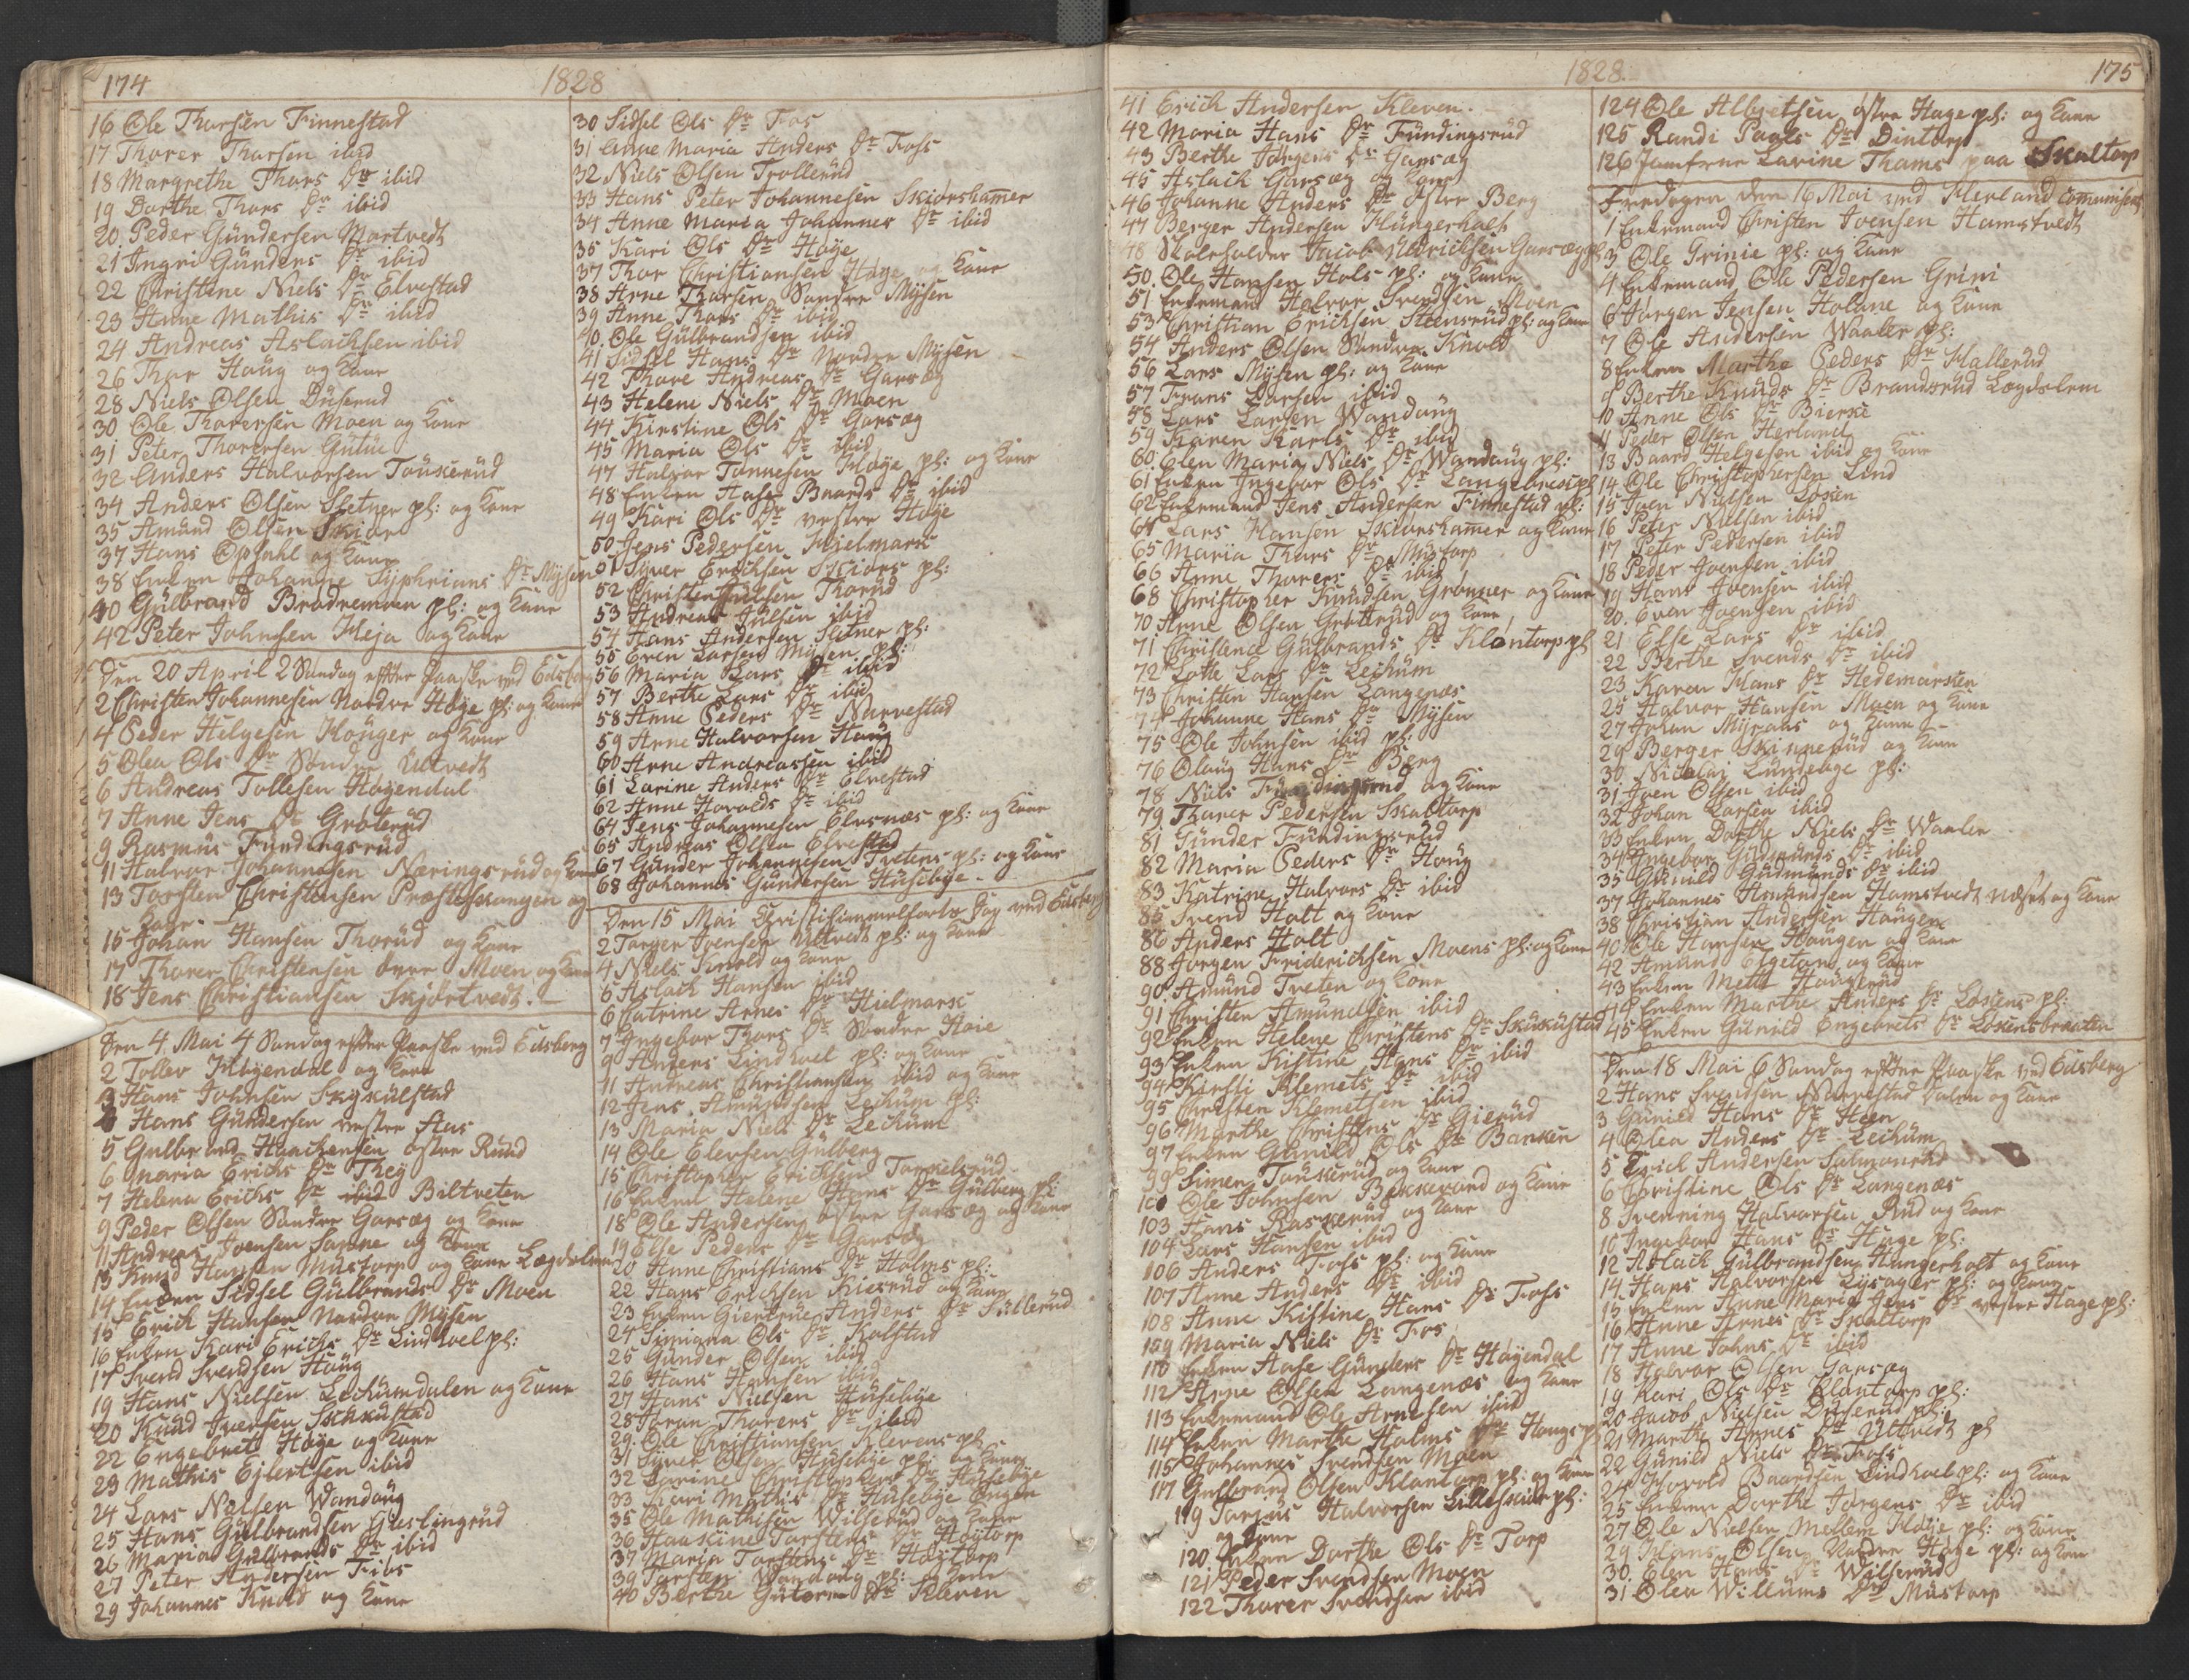 174
1828
16 Ole Thorsen Finnestad
17 Thorer Thorsen ibid
18 Margrethe Thors Dr ibid
19 Dorthe Thors Dr ibid
20 Peder Gündersen Mortvedt
21 Ingri Günders Dr ibid
22 Christine Niels Dr Elvestad
23 Anne Mathis Dr ibid
24 Andreas Aslachsen ibid
26 Thor Haüg og Kone
28 Niels Olsen Düserud
30 Ole Thorersen Moen og Kone
31 Peter Thorersen Gütüe
32 Anders Halvorsen Touskerüd
34 Anders Olsen Sletner pl: og Kone
35 Amund Olsen Skior
37 Hans Opsahl og Kone
38 Enken Johanne Syphrians Dr Mysen
40 Gülbrand Brødremoen pl: og Kone
42 Peter Johnsen Heja og Kone
Den 20 April 2 Søndag efter Paaske ved Edsberg
2 Christen Johannesen Nordre Høye pl: og Kone
4 Peder Helgesen Honger og Kone
5 Olea Ols Dr Søndre Ultvedt
6 Andreas Tollefsen Høyendal
7 Anne Jens Dr Groterüd
9 Rasmus Fundingsrüd
11 Halvor Johannesen Næringsrüd og Kone
13 Torsten Christensen Præsteskangen og
Kone
15 Johan Hansen Thorüd og Kone
17 Thorer Christensen øvre Moen og Kone
18 Jens Christiansen Skjørtvedt.
Den 4 Mai 4 Søndag efter Paaske ved Edsberg
2 Tollev Høyendal og Kone
3 Hans Johnsen Skyskülstad
4 Hans Gündersen vestre Aas
5 Gulbrand Haachensen østre Ruud
6 Maria Erichs Dr Theÿ
7 Helena Erichs Dr ibid Biltveten
9 Peder Olsen Søndre Garsæg og Kone
11 Andreas Ivensen Sanne og Kone
13 Knud Hansen Müstorp og Kone Lægdslem
14 Enken Sidsel Gülbrands Dr Moen
15 Erich Hansen Nordre Mysen
16 Enken Kari Erichs Dr Lindhoel pl:
17 Svend Svendsen Haüg
19 Hans Nielsen Lechumdalen og Kone
20 Knud Iversen Schküstad
22 Engebret Høye og Kone
23 Mathis Ejlertsen ibid
24 Lars Nielsen Wandaüg
25 Hans Gülbrandsen Gieslingrüd
26 Maria Gülbrands Dr ibid
27 Peter Andersen Fos
29 Johannes Knold og Kone
30 Sidsel Ols Dr Fos
31 Anne Maria Anders Dr Foss
32 Niels Olsen Trollerüd
33 Hans Peter Johannesen Skiørshamer
34 Anne Maria Johannes Dr ibid
35 Kari Ols Dr Høye
37 Thor Christiansen Høye og Kone
38 Arne Thorsen Søndre Mysen
39 Anne Thors Dr ibid
40. Ole Gülbrandsen ibid
41 Sidsel Hans Dr Nordre Mysen
42 Thore Andreas Dr Garsæg
43 Helene Niels Dr Moen
44 Kirstine Ols Dr Garsæg
45 Maria Ols Dr ibid
47 Halvor Tønnesen Høye pl: og Kone
48 Enken Aase Baards Dr ibid
49 Kari Ols Dr vestre Høye
50 Jens Pedersen Hielmark
51 Syver Erichsen Skiørs pl:
52 Christen Thorüd
53 Andreas Julsen ibid
54 Hans Andersen Sletner pl:
55 Even Larsen Mysen pl:
56 Maria Lars Dr ibid
57 Berthe Lars Dr ibid
58 Anne Peders Dr Narvestad
59 Arne Halvorsen Haüg
60 Arne Andreassen ibid
61 Larine Anders Dr Elvestad
62 Anne Havolds Dr ibid
64 Jens Johannesen Elvsnæs pl: og Kone
65 Andreas Olsen Elvestad
67 Gunder Johannesen Tvetens pl: og Kone
68 Johannes Gündersen Hüsebye
Den 15 Mai Christi Himmelfarts Dag ved Edsberg
2 Torger Ivensen Ultvedt pl: og Kone
4 Niels Knold og Kone
5 Aslach Hansen ibid
6 Catrine Arnes Dr Hielmark
7 Ingebor Thors Dr Søndre Høie
9 Anders Lindhoel pl: og Kone
11 Andreas Christiansen ibid og Kone
12 Jens Amundsen Lechum pl:
13 Maria Niels Dr Lechum
14 Ole Elevsen Gülberg
15 Christopher Erichsen Tormelsrüd
16 Enken Helene Hans Dr Gülberg pl:
18 Ole Andersen østre Garsæg og Kone
19 Else Peders Dr Garsæg
20 Anne Christians Dr Holms pl:
22 Hans Erichsen Kiesrüd og Kone
23 Enken Giertrüe Anders Dr Süllerüd
24 Simiana Ols Dr Kolstad
25 Günder Olsen ibid
26 Hans Hansen ibid
27 Hans Nielsen Hüsebye
28 Joran Thorers Dr ibid
29. Ole Christiansen Klevens pl:
31 Syver Olsen Hüsebye pl: og Kone
32 Larine Christophers Dr Hüsebye
33 Kari Mathis Dr Hüsebye Engen
35 Ole Mathisen Wilserüd og Kone
36 Haaskine Torstens Dr Høytorp
37 Maria Torstens Dr Høytorp
39 Torsten Wandaüg pl: og Kone
40 Berthe Gutorms Dr Kleven
1828.
175
41 Erich Andersen Kleven.
42 Maria Hans Dr Fündingsrüd
43 Berthe Jørgens Dr Garsæg
45 Aslach Garsæg og Kone
46 Johanne Anders Dr østre Berg
47 Berger Andersen Hüngerholt
48 Skoleholder Jacob Uldrichsen Garsæg pl:
50. Ole Hansen Hols pl: og Kone
51 Enkemand Halvor Svendsen Moen
53 Christian Erichsen Steensrüd pl: og Kone
54 Anders Olsen Søndre Knold
56 Lars Mysen pl: og Kone
57 Frans Larsen ibid
58 Lars Larsen Wandaüg
59 Karen Karls Dr ibid
60. Elen Maria Niels Dr Wandaüg pl:
61 Enken Ingebor Ols Dr Langebrecs pl
62 Enkemand Jens Andersen Finnestad pl:
64 Lars Hansen Skiørshamer og Kone
65 Maria Thors Dr Müstorp
66 Anne Thorers Dr ibid
68 Christopher Knudsen Grønner og Kone
70 Arne Olsen Grøtterüd og Kone
71 Christence Gülbrands Dr Klontorp pl
72 Lotte Lars Dr Lechüm
73 Christen Hansen Langenæs
74 Johanne Hans Dr Mysen
75 Ole Johnsen ibid pl:
76 Olaüg Hans Dr Berg
78 Niels Fündingsrud og Kone
79 Thorer Pedersen Skaltorp
81 Günder Fündingsrüd
82 Maria Peders Dr Haüg
83 Katrine Halvors Dr ibid
85 Svend Holt og Kone
86 Anders Holt
88 Jørgen Friderichsen Moens pl: og Kone
90 Amund Tveten og Kone
91 Christen Amündsen ibid
92 Enken Helene Christens Dr Sküküstad
93 Enken Kistine Hans Dr ibid
94 Kirsti Klemets Dr ibid
95 Christen Klemetsen ibid
96 Marthe Christens Dr Gierüd
97 Enken Gunild Ols Dr Banken
99 Simen Touskerüd og Kone
101 Ole Johnsen Bekkevand og Kone
103 Hans Raskerüd og Kone
104 Lars Hansen ibid
106 Anders Foss pl: og Kone
107 Anne Anders Dr ibid
108 Anne Kistine Hans Dr Foss
109 Maria Niels Dr Fos
110 Enken Aase Günders Dr Høyendal
112 Arne Olsen Langenæs og Kone
113 Enkemand Ole Arnesen ibid
114 Enken Marthe Holms Dr Haugs pl
115 Johannes Svendsen Moen
117 Gulbrand Olsen Klontorp pl: og Kone
119 Tarjus Halvorsen Lilleskior pl:
og Kone
120. Enken Dorthe Ols Dr Torp
121 Peder Svendsen Moen
122 Thorer Svendsen ibid
124 Ole Albretsen østre Hage pl: og Kone
125 Randi Povels Dr Dintorp
126 Jomfrue Larine Thams paa Skaltorp
Fredagen den 16 Mai ved Herland Communiserede
1 Enkemand Christen Ivensen Hamstvedt
3 Ole Grinie pl: og Kone
4 Enkemand Ole Pedersen Grini
6 Jørgen Jensen Holane og Kone
7 Ole Andersen Waaler pl:
8 Enken Marthe Peders Dr Hallerüd
9 Berthe Knuds Dr Brandsrüd Lægdslem
10 Anne Ols Dr Bierke
11 Peder Olsen Herland
13 Baard Helgesen ibid og Kone
14 Ole Christophersen Lund
15 Iven Nielsen Løsen
16 Peter Nielsen ibid
17 Peter Pedersen ibid
18 Peder Ivensen ibid
19 Hans Ivensen ibid
20. Even Ivensen ibid
21 Else Lars Dr ibid
22 Berthe Svends Dr ibid
23 Karen Hans Dr Hedemarken
25 Halvor Hansen Moen og Kone
27 Johan Myraas og Kone
29 Berger Skinnerüd og Kone
30 Nicolai Lundebye pl:
31 Iven Olsen ibid
32 Johan Larsen ibid
33 Enken Dorthe Niels Dr Waaler
34 Ingebor Gudmunds Dr ibid
35 Gunild Gudmunds Dr ibid
37 Johannes Amundsen Hamstvedt Næset og Kone
38 Christian Andersen Haugen
40 Ole Hansen Haugen og Kone
42 Amund Elgetun og Kone
43 Enken Mette Haügerüd
44 Enken Marthe Anders Dr Løsens pl:
45 Enken Günild Engebrets Dr Løsensbraaten
Den 18 Mai 6 Søndag efter Paaske ved Edsberg
2 Hans Svendsen Narvestad Dalen og Kone
3 Günild Hans Dr Heen
4 Olea Anders Dr Lechüm
5 Erich Andersen Salmonrüd
6 Christine Ols Dr Langenæs
8 Svenning Halvorsen Rüd og Kone
10 Ingebor Hans Dr Hage pl:
12 Aslach Gülbrandsen Hüngerholt og Kone
14 Hans Halvorsen Lysager pl: og Kone
15 Enken Anne Maria Jens Dr vestre Hage pl:
16 Anne Arnes Dr Skaltorp
17 Anne Johns Dr ibid
18 Halvor Olsen Garsæg
19 Kari Ols Dr Klontorp pl:
20 Jacob Nielsen Düserüd pl:
21 Marthe Arnes Dr Ultvedt pl
22 Günild Niels Dr Foss
24 Havold Baardsen Lindhoel pl: og Kone
25 Enken Dorthe Jørgens Dr ibid
27 Ole Nielsen Mellem Høye pl: og Kone
29 Hans Olsen Nordre Høye pl: og Kone
30. Elen Hans Dr Wilserüd
31 Olea Willums Dr Müstorp